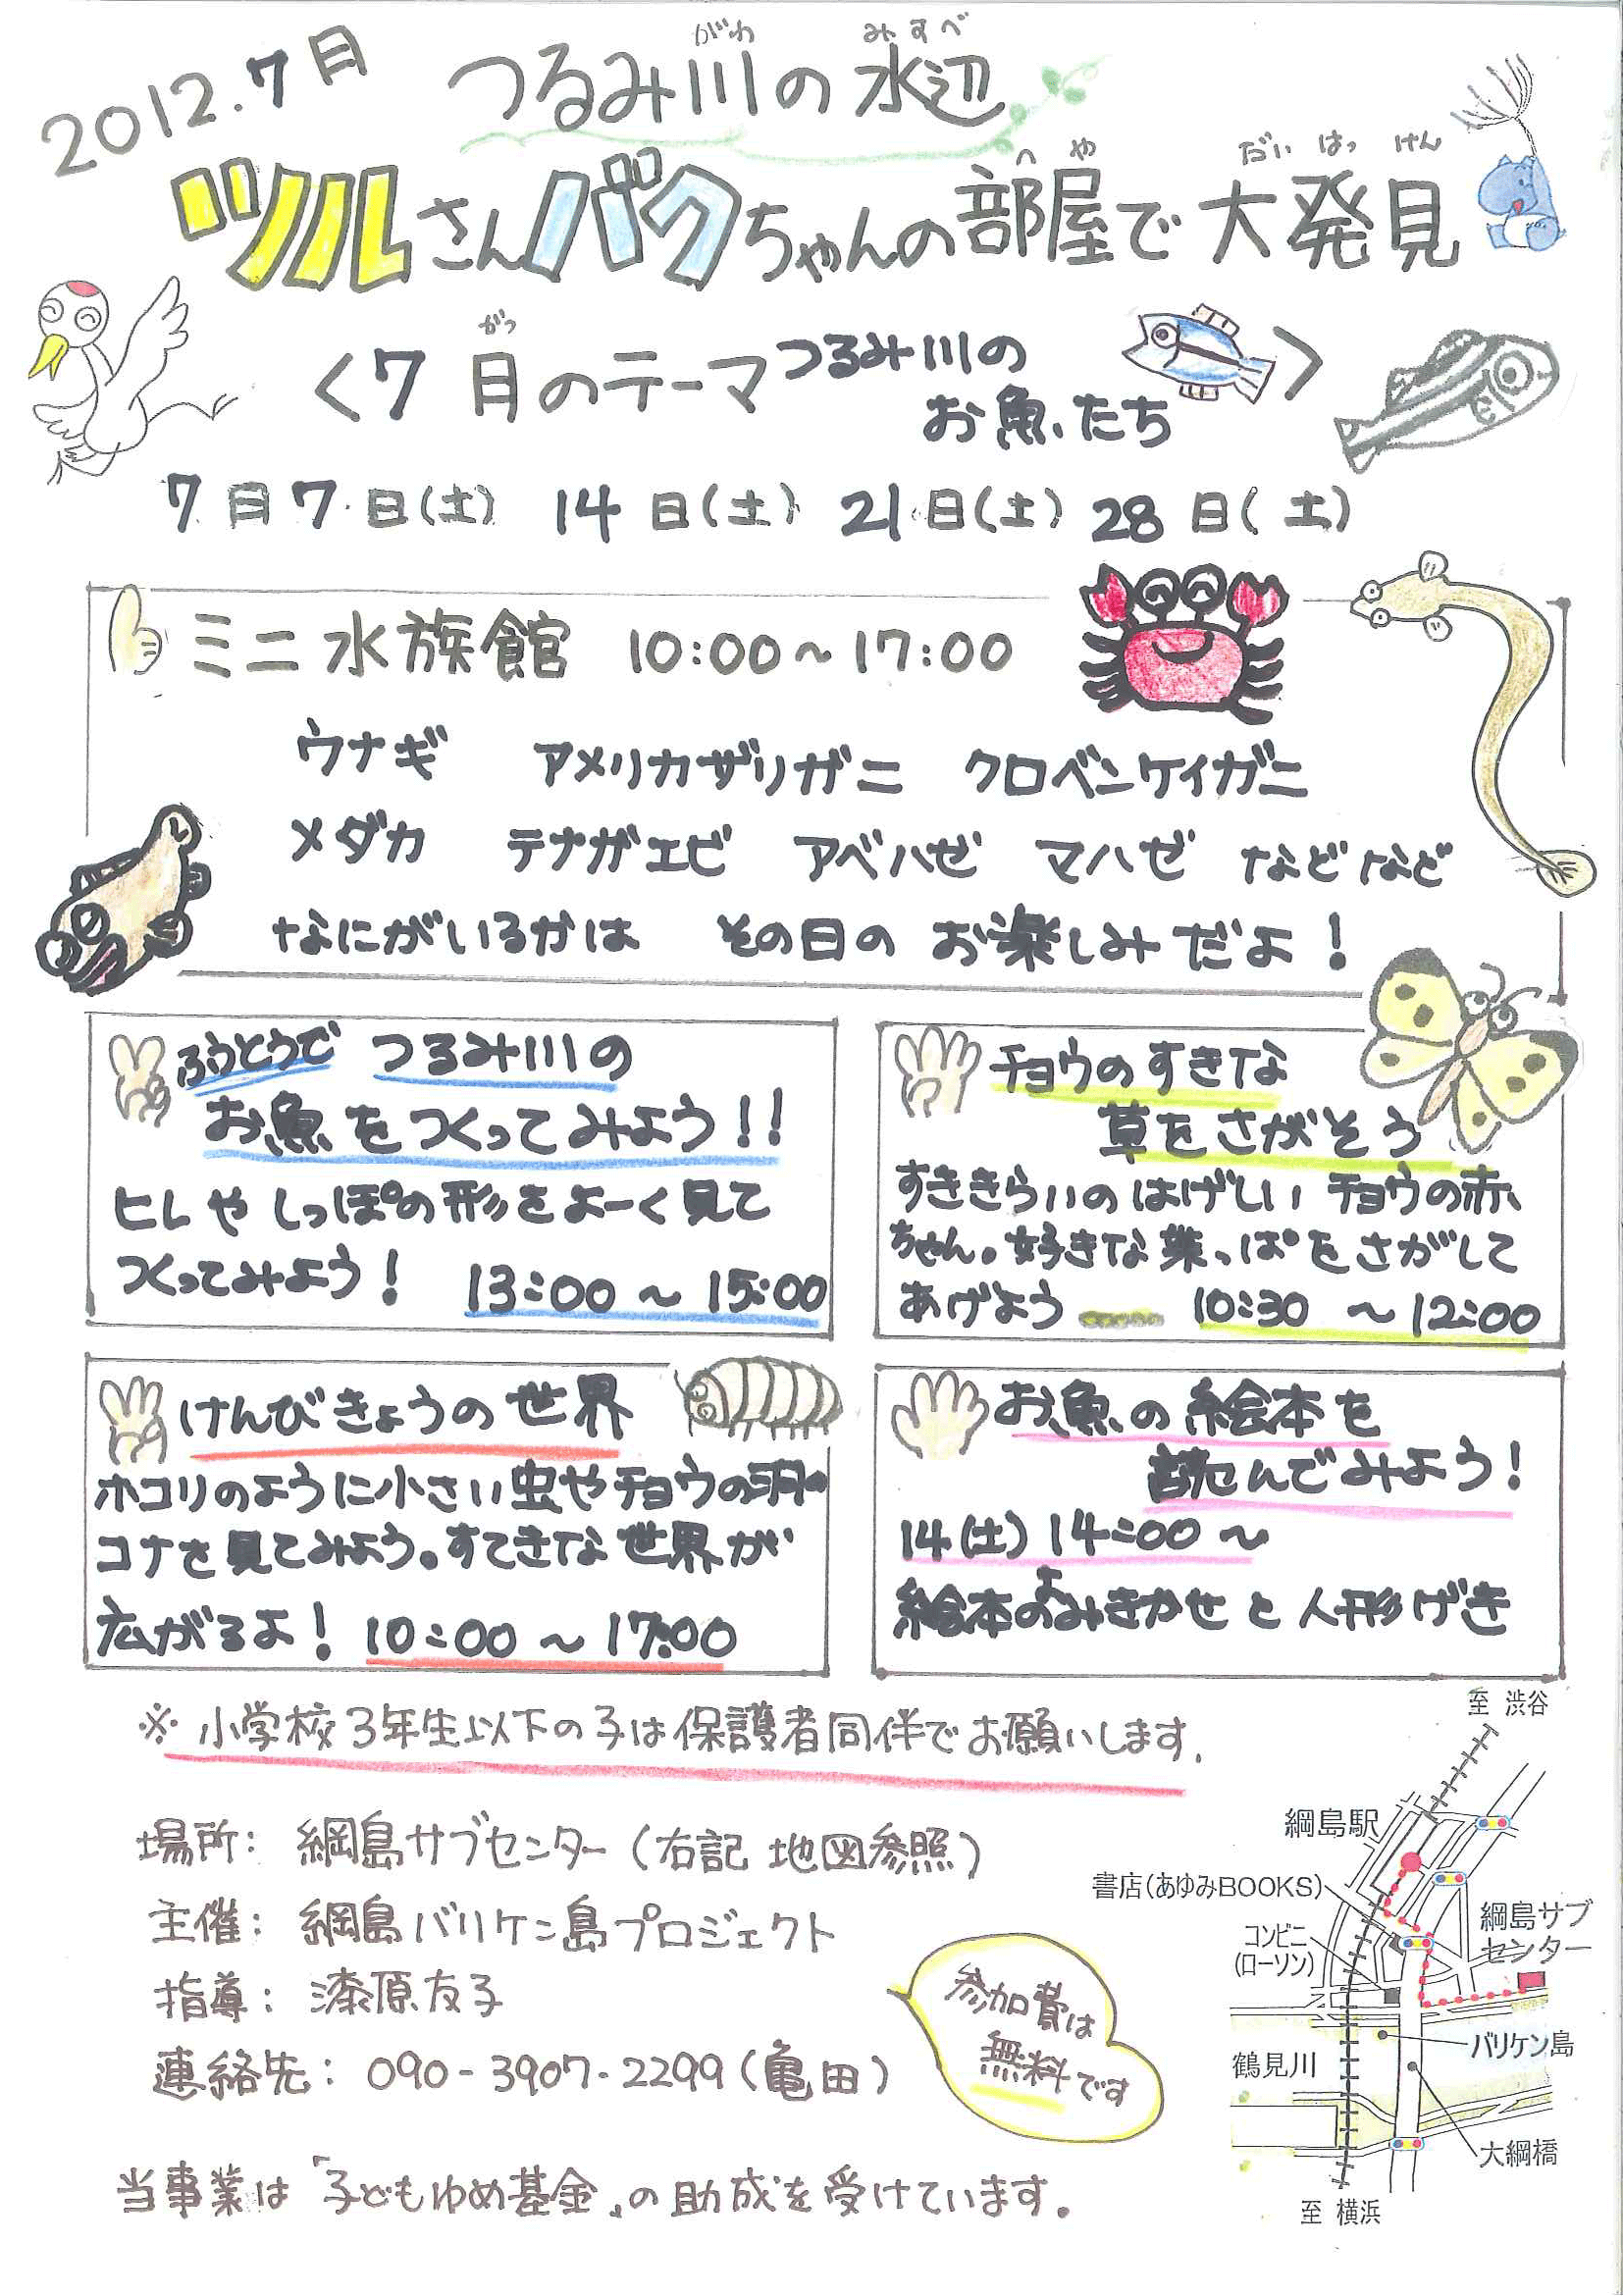 2012.7月
つるみ川の水辺
がわ みずべ
ツルさんバクちゃんの部屋で大発見
へや だいはっけん
<7月のテーマ つるみ川の
がつ
お魚たち>
7月7日(土) 14日(土) 21日(土) 28日(土)
ミニ水族館 10:00~17:00
ウナギ アメリカザリガニ クロベンケイガニ
メダカ テナガエビ アベハゼ マハゼ などなど
なにがいるかは その日の お楽しみだよ!
ふうとうで つるみ川の
お魚をつくってみよう!!
ヒレや しっぽの形をよーく見て
つくってみよう! 13:00~15:00
チョウのすきな
草をさがそう
すききらいの はげしい チョウの赤
ちゃん。好きな葉っぱをさがして
あげよう 10:30 ~12:00
けんびきょうの世界
ホコリのように小さい虫やチョウの羽の
コナを見てみよう。すてきな世界が
広がるよ! 10:00~17:00
お魚の絵本を
読んでみよう!
14(土) 14:00~
絵本のよみきかせと人形げき
※小学校3年生以下の子は保護者同伴でお願いします.
場所: 綱島サブセンター(右記 地図参照)
主催: 綱島バリケン島プロジェクト
指導: 漆原友子
連絡先: 090-3907-2299(亀田)
参加費は
無料です
当事業は「子どもゆめ基金」の助成を受けています。
至 渋谷
綱島駅
書店(あゆみBOOKS)
コンビニ
(ローソン)
綱島サブ
センター
バリケン島
鶴見川
大綱橋
至 横浜